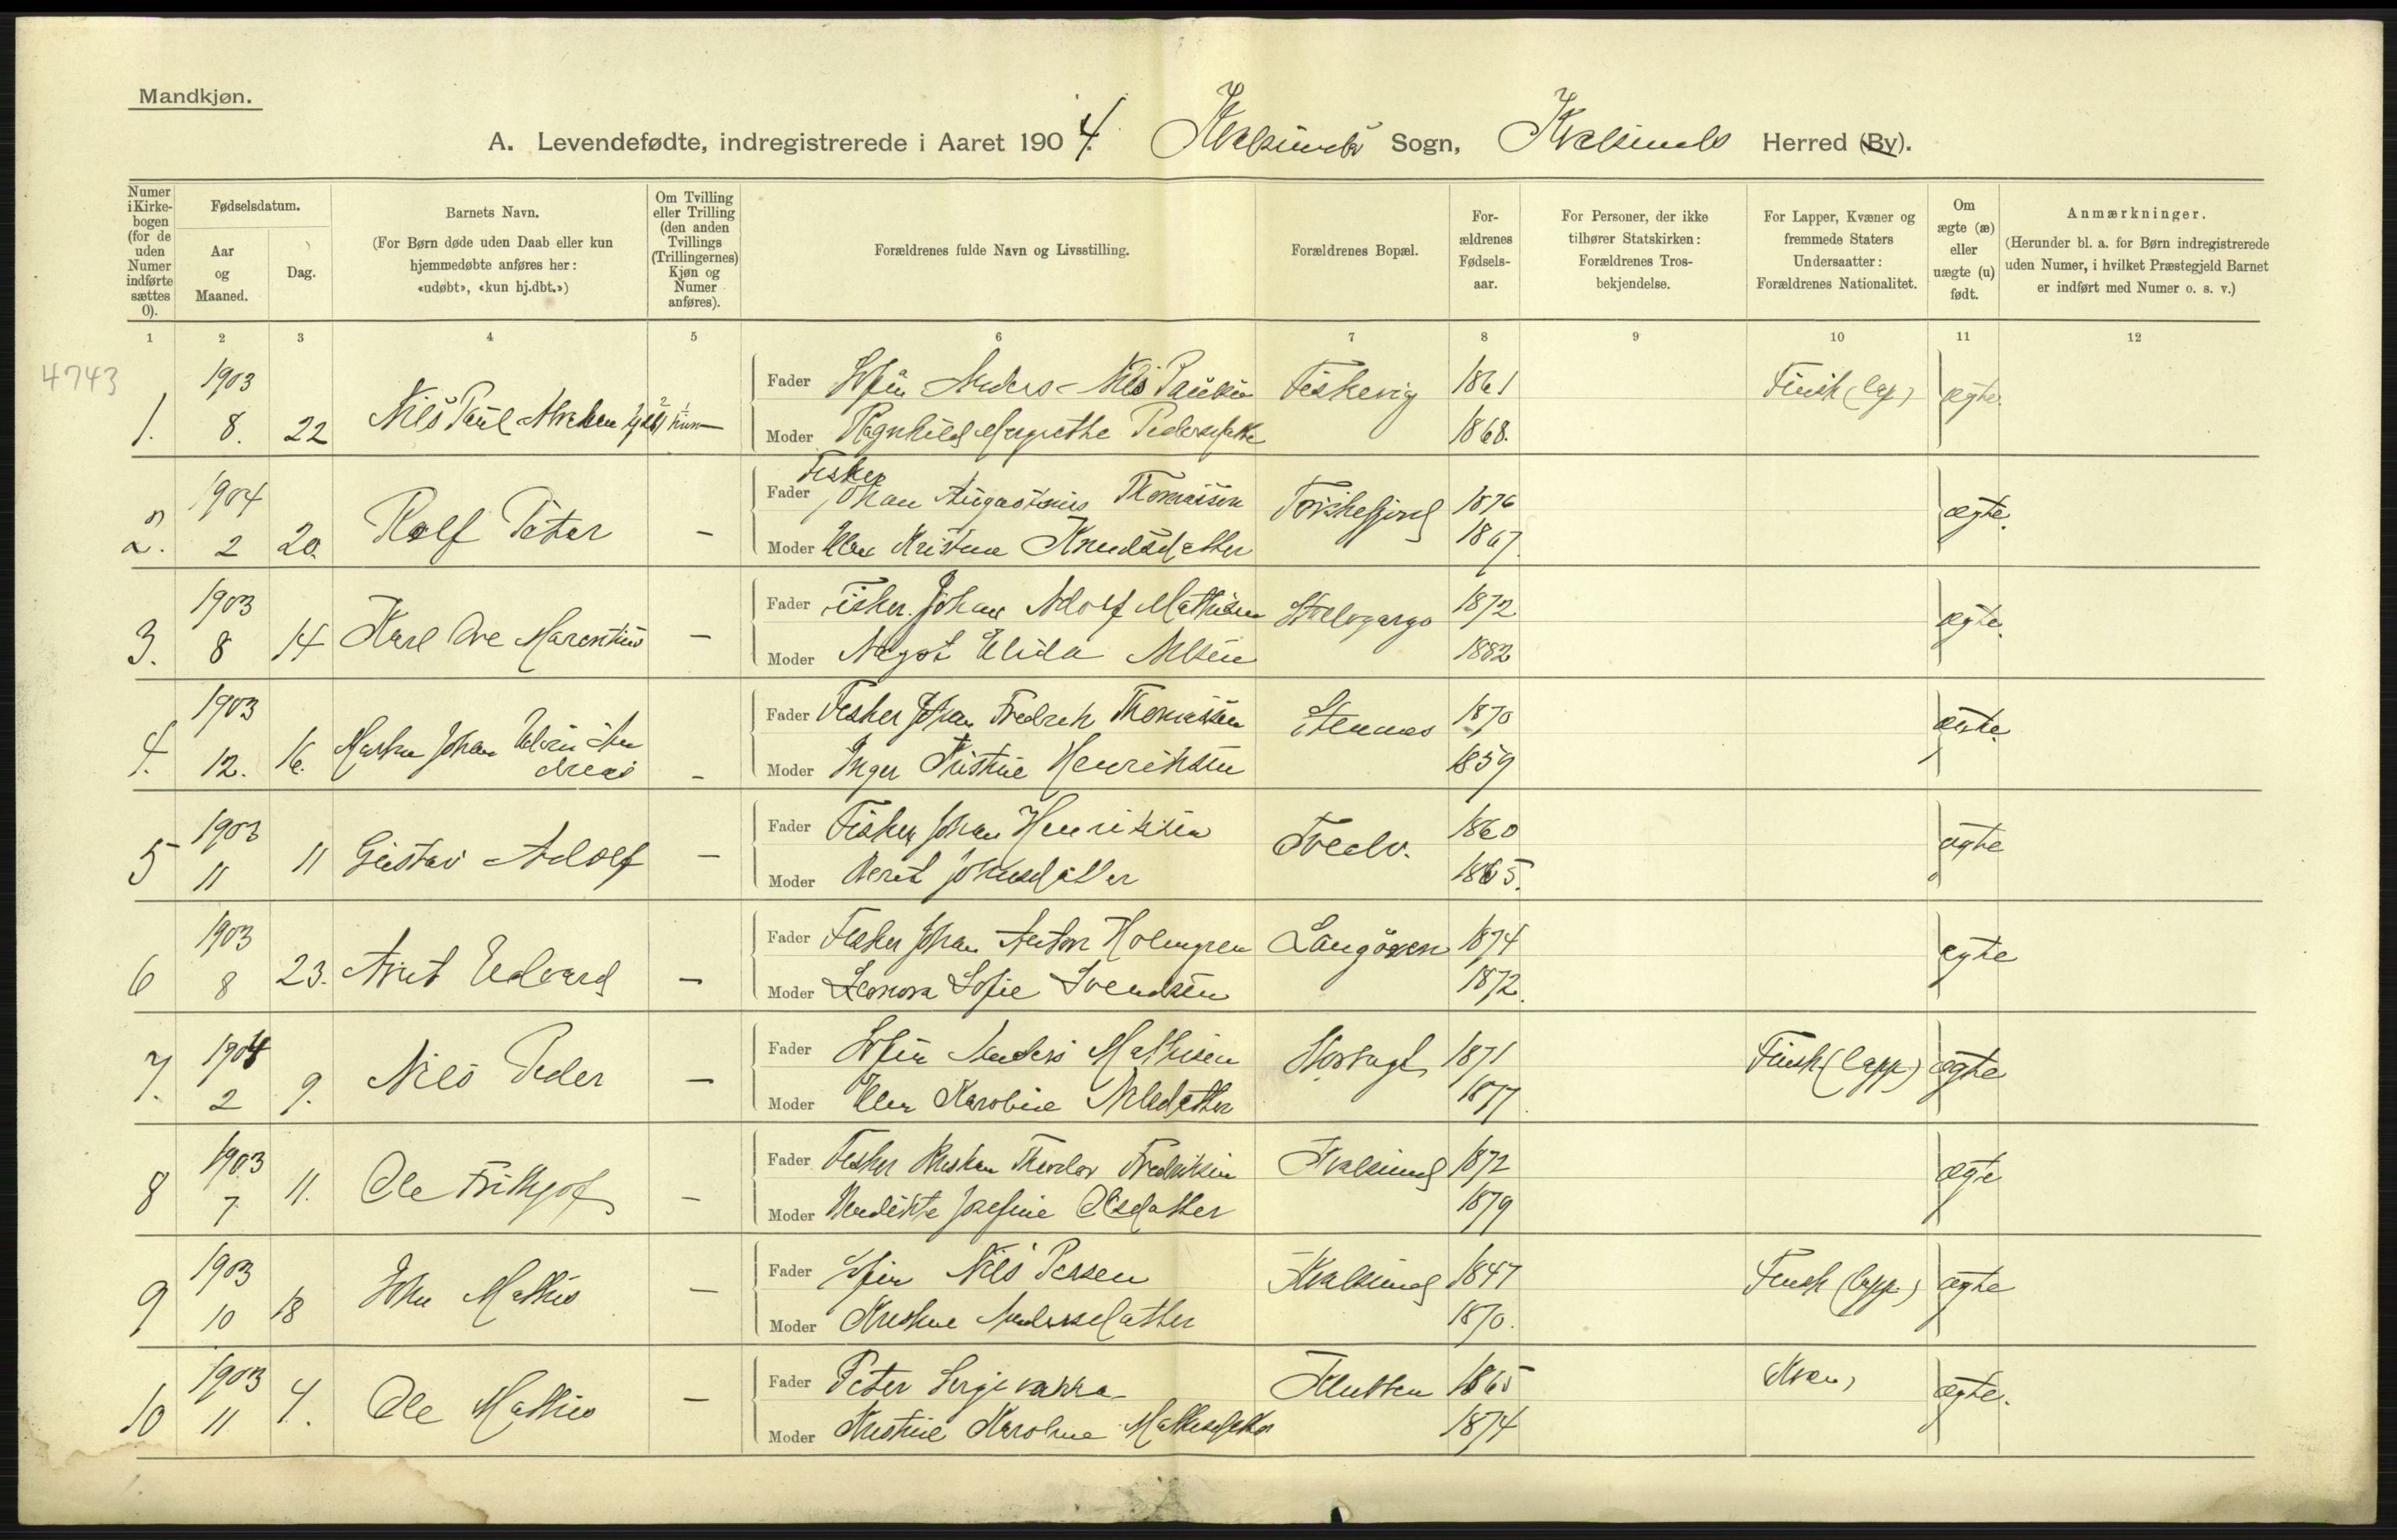 Mandkjøn.
A. Levendefødte, indregistrerede i Aaret 1904. Kvalsunds Sogn, Kvalsunds Herred (By).
Numer i Kirkebogen (for de uden Numer indførte sættes 0).
Fødselsdatum.
Aar og Maaned.
Dag.
Barnets Navn.
(For Børn døde uden Daab eller kun hjemmedøbte anføres her: «udøbt», «kun hj.dbt.»)
Om Tvilling eller Trilling (den anden Tvillings (Trillingernes) Kjøn og Numer anføres).
Forældrenes fulde Navn og Livsstilling.
Forældrenes Bopæl.
Forældrenes Fødselsaar.
For Personer, der ikke tilhører Statskirken: Forældrenes Trosbekjendelse.
For Lapper, Kvæner og fremmede Staters Undersaatter: Forældrenes Nationalitet.
Om ægte (æ) eller uægte (u) født.
Anmærkninger.
(Herunder bl. a. for Børn indregistrerede uden Numer, i hvilket Præstegjeld Barnet er indført med Numer o. s. v.)
1 2 3 4 5 6 7 8 9 10 11 12
4743
1903 Fader Anders Nils Fiskevig 1861 Finsk (lap) ægte
1. 8. 22 Nils Paul Moder Ragnhild Margrethe Pedersdatter 1868.
1904 Fader Fisker Johan Augustinus Thomassen Torskefjord 1876 ægte
2. 2 20. Rolf Peter — Moder Kristine Knudsdatter 1867.
1903 Fader Fisker Johan Adolf Mathisen 1872 ægte
3. 8 14 Karl Ove Marentius — Moder Elida Nilsen 1882
1903 Fader Fisker Johan Fredrik Thomassen Stennes 1870 ægte
4. 12. 16. Johan — Moder Inger Kristine Henriksen 1859
1903 Fader Fisker Johan Henriksen 1860 ægte
5 11 11 Gustav Adolf — Moder Berit Johnsdatter 1865.
1903 Fader Fisker Johan Anton Holmgren 1874 ægte
6 8 23. Arnt Edvard — Moder Leonora Sofie Svendsen 1872.
1904 Fader Anders Mathisen 1871 Finsk (lapp) ægte
7. 2 9. Nils Peder — Moder Ellen Karoline Nilsdatter 1877.
1903 Fader Fisker Fredriksen Kvalsund 1872 ægte
8 7 11. Ole Frithjof — Moder Josefine Olsdatter 1879
1903 Fader Nils Persen Kvalsund 1847 Finsk (lapp) ægte
9 10 18 John Mathis — Moder Kristine Andersdatter 1870.
1903 Fader Peter Klubben 1865 Kvæn ægte.
10 11 4. Ole Mathis — Moder Kristine Karoline Mathisdatter 1874